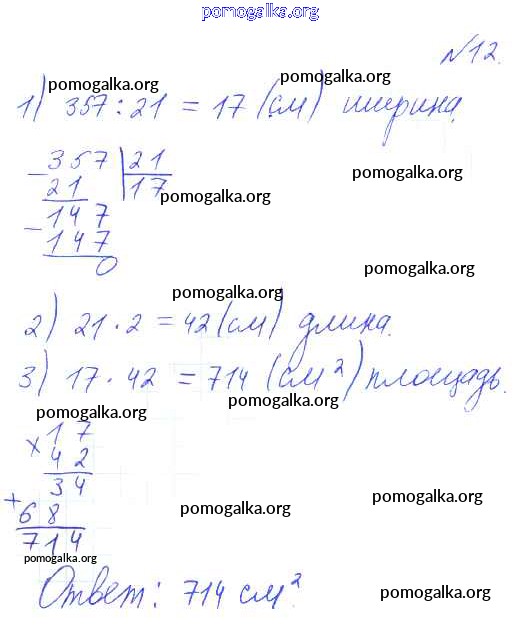 pomogalka.org
№12.
pomogalka.org pomogalka.org
1) 357 : 21 = 17 (см) ширина.
- 357 | 21
21 | 17
pomogalka.org
pomogalka.org
- 147
147
0
pomogalka.org
pomogalka.org
2) 21 · 2 = 42 (см) длина.
pomogalka.org
3) 17 · 42 = 714 (см²) площадь.
pomogalka.org pomogalka.org
× 17
42
34
+ 68
pomogalka.org pomogalka.org
714
pomogalka.org
Ответ: 714 см².
pomogalka.org